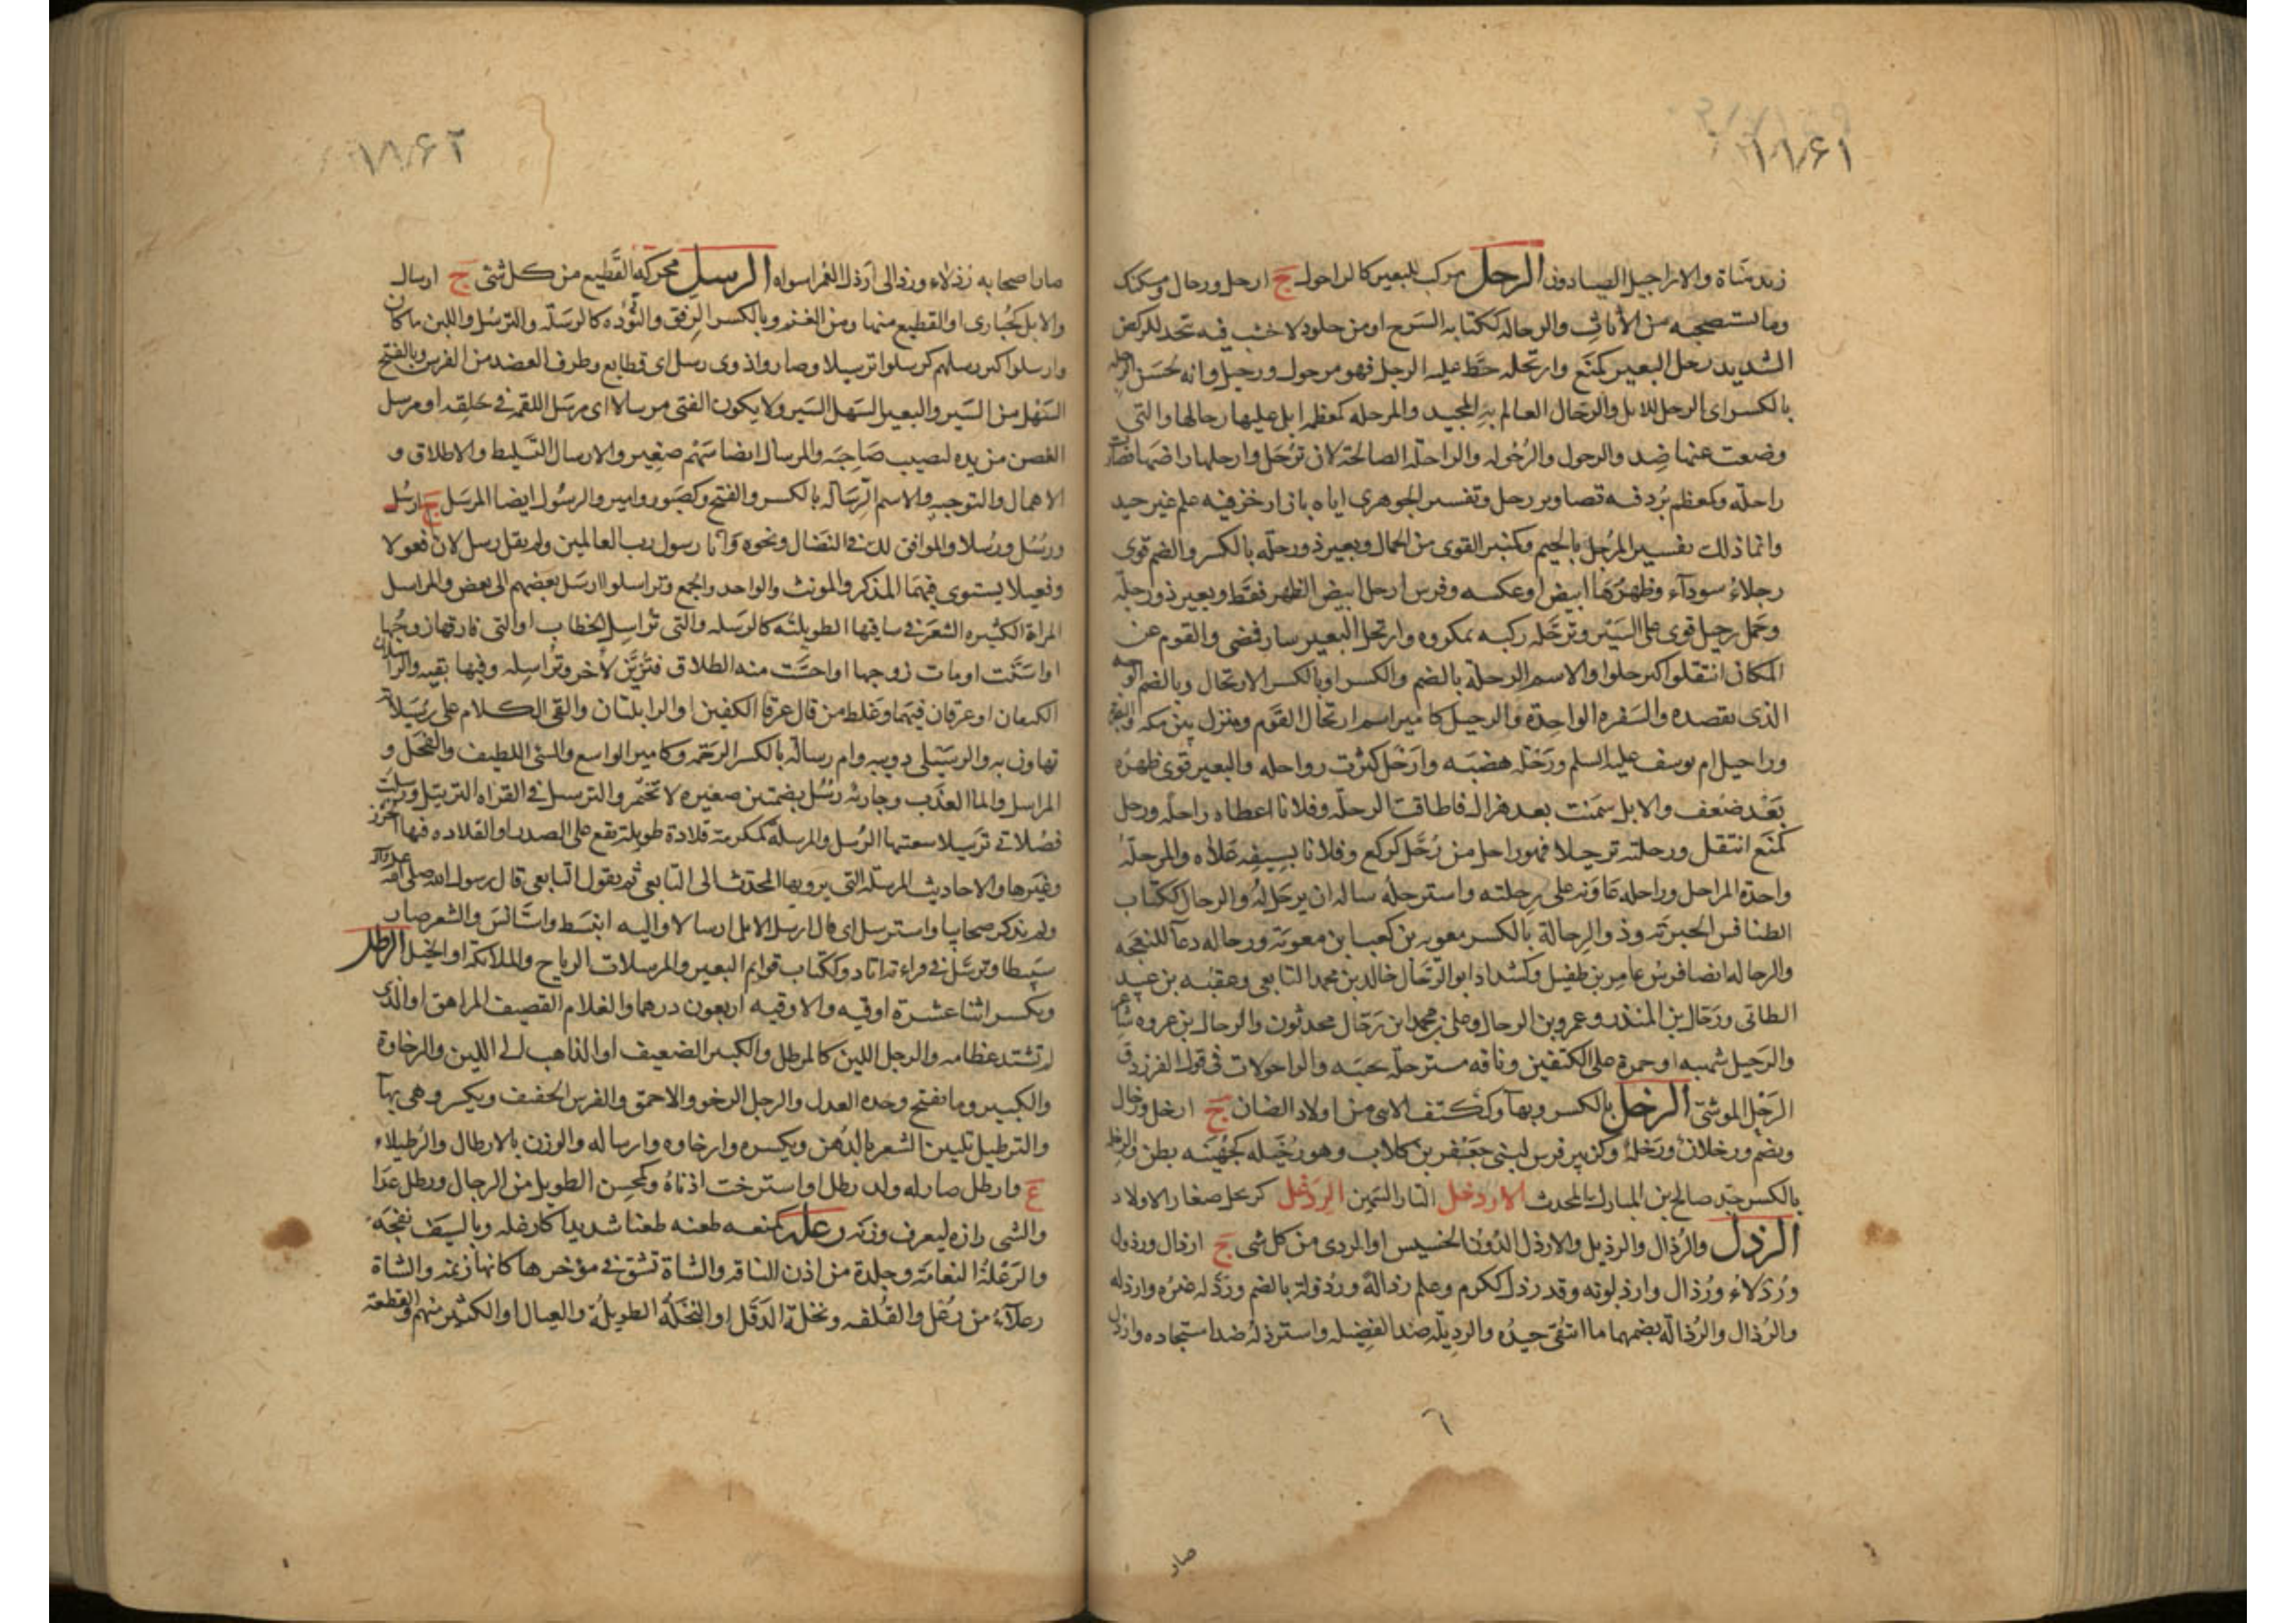 ١٨٦١
زيد مناة والاراجيل الصيادون الرحل مركب للبعير كالراحول ج ارحل ورحال ومسكنك
وما تستصحبه من الأثاث والرحاله ككتابه السرج او من جلود لا خشب فيه تتخذ للركض
الشديد رحل البعير كمنع وارتحله حط عليه الرحل فهو مرحول ورحيل وانه لحسن الرحله
بالكسر اى الرحل للابل والرحال العالم به المجيد والمرحله كمعظمه ابل عليها رحالها والتى
وضعت عنها ضد والرحول والرحوله والراحله الصالحة لان ترحل وارحلها راضها فصارت
راحلة وكمعظم برد فيه تصاوير رحل وتفسير الجوهرى اياه بازار خز فيه علم غير جيد
وانما ذلك تفسير المرجل بالجيم وكنبر القوى من الجمال وبعير ذو رحلة بالكسر والضم قوى
رجلاء سودآء وظهرها ابيض او عكسه وفرس ارحل ابيض الظهر فقط وبعير ذو رحلة
وجمل رحيل قوى على السير وترحله ركبه بمكروه وارتحل البعير سار فمضى والقوم عن
المكان انتقلوا كترحلوا والاسم الرحلة بالضم والكسر او بالكسر الارتحال وبالضم الوجه
الذى تقصده والسفره الواحدة والرحيل كامير اسم ارتحال القوم ومنزل بين مكه والبصره
وراحيل ام يوسف عليه السلم ورحله هضبه وارحل كثرت رواحله والبعير قوى ظهره
بعد ضعف والابل سمنت بعد هزال فاطاقت الرحلة وفلانا اعطاه راحلة ورحل
كمنع انتقل ورحلته ترحيلا فهو راحل من رحل كركع وفلانا بسيفه علاه والمرحلة
واحدة المراحل وراحله عاونه على رحلته واسترحله ساله ان يرحل له والرحال ككتاب
الطنافس الحيرية وذو الرحالة بالكسر معويه بن كعب بن معوية ورحاله دعآ للنعجه
والرحاله ايضا فرس عامر بن طفيل وكشداد ابو الرحال خالد بن محمد التابعى وعقبه بن عبيد
الطائى ورحال بن المنذر وعمرو بن الرحال وعلى بن محمد ابن رحال محدثون والرحال بن عروه شاعر
والترحيل شهبه او حمرة على الكتفين وناقه مسترحلة نجيبه والراحولات فى قول الفرزدق
الرحل الموشى الرخل بالكسر وبهآ وككتف الانثى من اولاد الضان ج ارخل ورخال
ويضم ورخلان ورخلة وكزبير فرس لبنى جعفر بن كلاب وهو رخيله كجهينه بطن والرخله
بالكسر جد صالح بن المبارك المحدث الاردخل التار السمين الردخل كربحل صغار الاولاد
الرذل والرذال والرذيل والارذل الدون الخسيس او الردى من كل شى ج ارذال ورذول
ورذلاء ورذال وارذلونه وقد رذل ككرم وعلم رذالة ورذولة بالضم ورذله غيره وارذله
والرذال والرذالة بضمهما ما انتقى جيده والرذيله ضد الفضيله واسترذله ضد استجاده وارذل
صار
١٨٦٢
صار اصحابه رذلاء ورذالى ارذل العمر اسواه الرسل محركه القطيع من كل شئ ج ارسال
والابل كحبارى او القطيع منها ومن الغنم وبالكسر الرفق والتؤده كالرسله والترسل واللبن ما كان
وارسلوا كثر رسلهم كرسلوا ترسيلا وصاروا ذوى رسل اى قطايع وطرف العضد من الفرس وبالفتح
السهل من السير والبعير السهل السير ولا يكون الفتى مرسالا اى مرسل اللقمه فى حلقه او مرسل
الغصن من يده ليصيب صاحبه والمرسال ايضا سهم صغير والارسال التسليط والاطلاق و
الاهمال والتوجيه والاسم الرسالة بالكسر والفتح وكصبور وامير والرسول ايضا المرسل ج ارسل
ورسل ورسلا والموافق لك فى النضال ونحوه وانا رسول رب العالمين ولم يقل رسل لان فعولا
وفعيلا يستوى فيهما المذكر والمونث والواحد والجمع وتراسلوا ارسل بعضهم الى بعض والمراسل
المراة الكثيره الشعر فى ساقيها الطويلته كالرسله والتى تراسل الخطاب او التى فارقها زوجها
او اسنت او مات زوجها او احست منه الطلاق فتزين لآخر وتراسله وفيها بقيه والراسلان
الكتفان او عرقان فيهما وغلط من قال عرقا الكفين او الرابلتان والقى الكلام على رسيلاته
تهاون به والرسيلى دويبه وام رسالة بالكسر الرخمه وكامير الواسع والشى اللطيف والفحل و
المراسل والما العذب وجاريه رسل بضمتين صغيره لا تختمر والترسل فى القراه الترتيل ورسلت
فصلانى ترسيلا سقيتها الرسل والمرسلة كمكرمة قلادة طويلة تقع على الصدر او القلاده فيها الخرز
وغيرها والاحاديث المرسلة التى يرويها المحدث الى التابعى ثم يقول التابعى قال رسول الله صلى الله عليه وآله
ولم يذكر صحابيا واسترسل اى قال ارسل الابل ارسالا واليه انبسط واستانس والشعر صار
سبطا وترسل فى قراءته اتاد وككتاب قوايم البعير والمرسلات الرياح والملائكة او الخيل الرطل
ويكسر اثنا عشرة اوقيه والاوقيه اربعون درهما والغلام القصيف المراهق او الذى
لم تشتد عظامه والرجل اللين كالمرطل والكبير الضعيف او الذاهب الى اللين والرخاوة
والكبير وما يفتح وحده العدل والرجل الرخو والاحمق والفرس الخفيف ويكسر وهى بهآ
والترطيل تليين الشعر بالدهن وتكسره وارخاوه وارساله والوزن بالارطال والرطيلاء
ع وارطل صار له ولد رطل او استرخت اذناه وكمحسن الطويل من الرجال ورطل عدا
والشى رازه ليعرف وزنه رعله كمنعه طعنه طعنا شديدا كارعله وبالسيف نفحه
والرعلة النعامة وجلدة من اذن للناقه والشاة تشق فى مؤخرها كانها زنمه والشاة
رعلآء من رعل والقلفه ونخلة الدقل او النخله الطويلة والعيال او الكثير منهم والقطعة